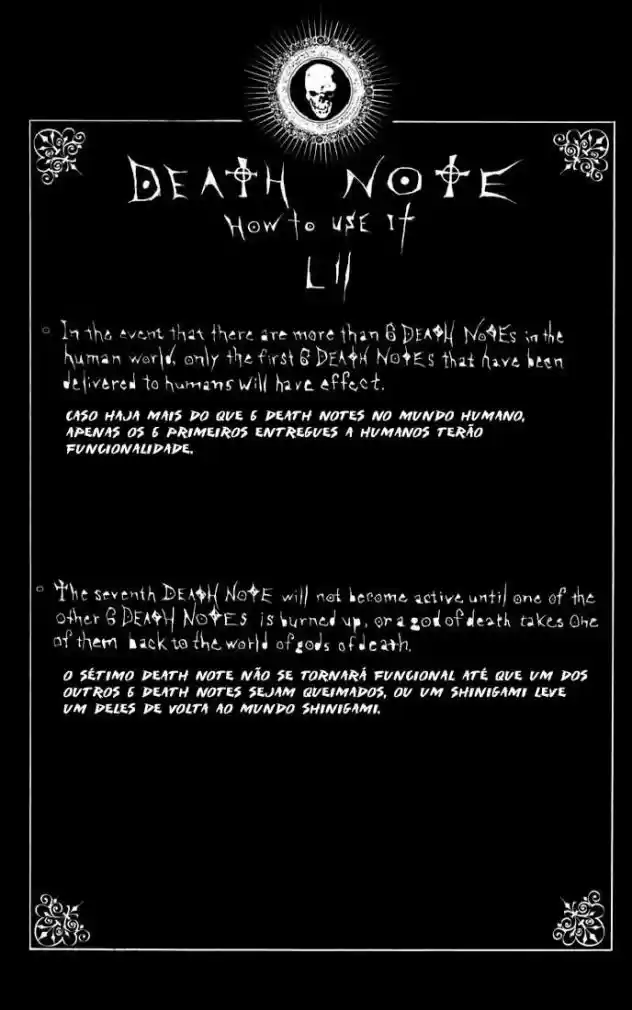 DEATH NOTE
How to USE It
LII
In the event that there are more than 6 DEATH NOTEs in the
human world, only the first 6 DEATH NOTEs that have been
delivered to humans will have effect.
CASO HAJA MAIS DO QUE 6 DEATH NOTES NO MUNDO HUMANO,
APENAS OS 6 PRIMEIROS ENTREGUES A HUMANOS TERÃO
FUNCIONALIDADE.
The seventh DEATH NOTE will not become active until one of the
other 6 DEATH NOTES is burned up, or a god of death takes One
of them back to the world of gods of death.
O SÉTIMO DEATH NOTE NÃO SE TORNARÁ FUNCIONAL ATÉ QUE UM DOS
OUTROS 6 DEATH NOTES SEJAM QUEIMADOS, OU UM SHINIGAMI LEVE
UM DELES DE VOLTA AO MUNDO SHINIGAMI.